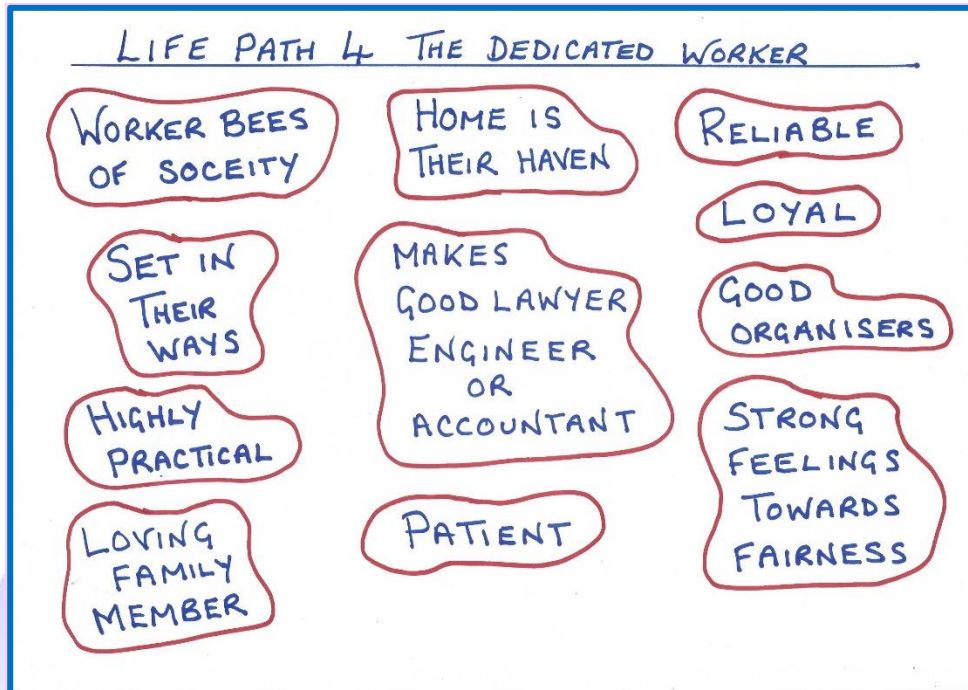 LIFE PATH 4 THE DEDICATED WORKER
WORKER BEES
OF SOCEITY
SET IN
THEIR
WAYS
HIGHLY
PRACTICAL
LOVING
FAMILY
MEMBER
HOME IS
THEIR HAVEN
MAKES
GOOD LAWYER
ENGINEER
OR
ACCOUNTANT
PATIENT
RELIABLE
LOYAL
GOOD
ORGANISERS
STRONG
FEELINGS
TOWARDS
FAIRNESS